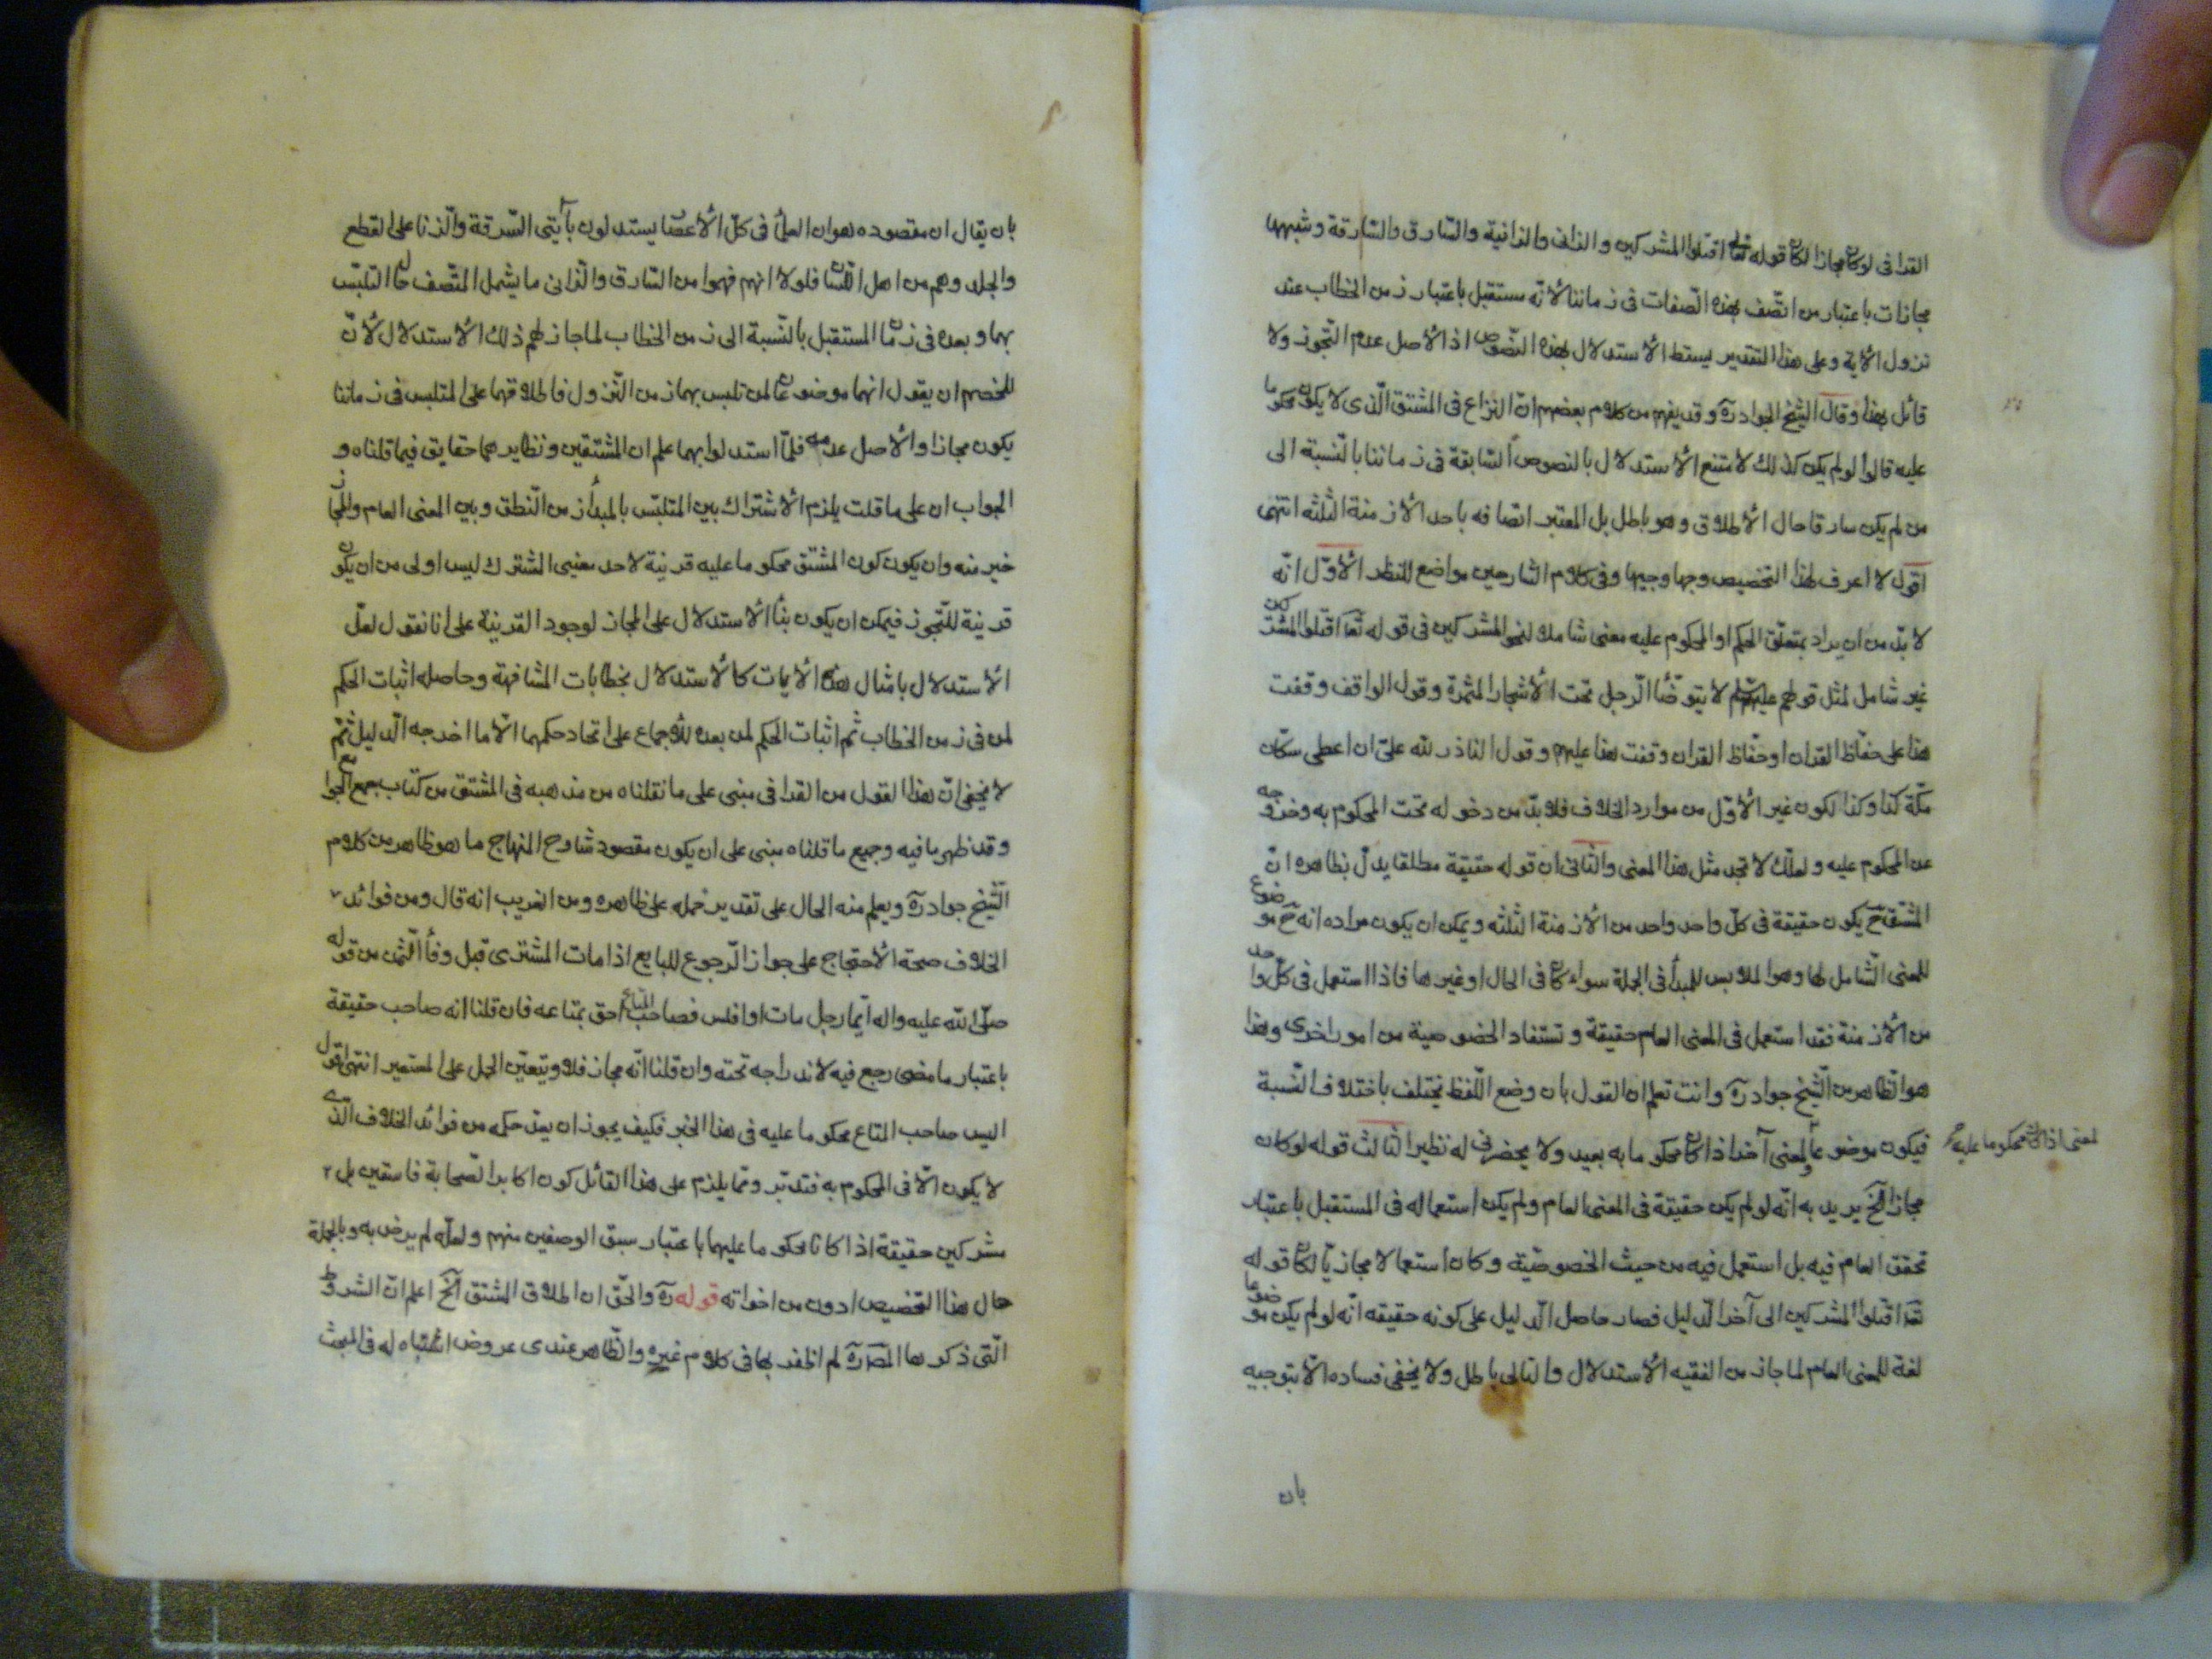 القرافى لو كان مجازا لكان قوله تعالى اقتلوا المشركين والزانى والزانية والسّارق والسّارقة وشبهها
مجازات باعتبار من اتّصف بهذه الصّفات فى زماننا لانّه مستقبل باعتبار زمن الخطاب عند
نزول الآية وعلى هذا التقدير يسقط الاستدلال بهذه النّصوص اذ الأصل عدم التّجوز ولا
قائل بهذا وقال الشّيخ الجواد ره وقد يفهم من كلام بعضهم انّ النزاع فى المشتق الّذى لا يكون محكوما
عليه قالوا لو لم يكن كذلك لامتنع الأستدلال بالنصوص السّابقة فى زماننا بالنّسبة الى
من لم يكن سارقا حال الأطلاق وهو باطل بل المعتبر اتصافه باحد الأزمنة الثلثه انتهى
اقول لا اعرف لهذا التخصيص وجها وجيها وفى كلام الشارحين مواضع للنظر الأوّل انّه
لا بدّ من ان يراد بمتعلّق الحكم او المحكوم عليه معنى شامل لنحو المشركين فى قوله تعا اقتلوا المشركين
غير شامل لمثل قولهم عليهم السلم لا يتوضّأ الرّجل تحت الأشجار المثمرة وقول الواقف وقفت
هذا على حفّاظ القران او حفّاظ القران وقفت هذا عليهم وقول الناذر لله علىّ ان اعطى سكّان
مكّة كذا وكذا لكون غير الأوّل من موارد الخلاف فلا بدّ من دخوله تحت المحكوم به وخروجه
عن المحكوم عليه ولعلّك لا تجد مثل هذا المعنى والثّانى ان قوله حقيقة مطلقا يدلّ بظاهره انّ
المشتقّ ح يكون حقيقة فى كلّ واحد واحد من الأزمنة الثّلثه ويمكن ان يكون مراده انه ح موضوع
للمعنى الشّامل لها وهو الملابس للمبدأ فى الجملة سواء كان فى الحال او غيرها فاذا استعمل فى كلّ واحد
من الأزمنة فقد استعمل فى المعنى العام حقيقة وتستفاد الخصوصية من امور اخرى وهذا
هو الظاهر من الشّيخ جواد ره وانت تعلم ان القول بان وضع اللّفظ يختلف باختلاف النّسبة
فيكون موضوعا لمعنى اذا كان محكوما عليه
ولمعنى آخر اذا كان محكوما به بعيد ولا يحضرنى له نظير الثالث قوله لو كان
مجازا الخ يريد به انّه لو لم يكن حقيقة فى المعنى العام ولم يكن استعماله فى المستقبل باعتبار
تحقق العام فيه بل استعمل فيه من حيث الخصوصيّة وكان استعمالا مجازيّا لكان قوله
تعا اقتلوا المشركين الى آخر الدّليل فصار حاصل الدّليل على كونه حقيقه انّه لو لم يكن موضوعا
لغة للمعنى العام لما جاز من الفقيه الأستدلال والتالى باطل ولا يخفى فساده الّا بتوجيه
بان
بان يقال ان مقصوده هو ان العلماء فى كلّ الأعصار يستدلون بآيتى السّرقة والّزنا على القطع
والجلد وهم من اهل اللّسان فلولا انهم فهموا من السّارق والزّانى ما يشمل المتّصف حال التلبّس
بها وبعده فى زمان المستقبل بالنّسبة الى زمن الخطاب لما جاز لهم ذلك الأستدلال لأنّ
للخصم ان يقول انهما موضوعان لمن تلبس بهما زمن النّزول فاطلاقهما على المتلبس فى زماننا
يكون مجازا والأصل عدمه فلمّا استدلوا بهما علم ان المشتقين ونظايرهما حقايق فيما قلناه و
الجواب ان على ما قلت يلزم الأشتراك بين المتلبّس بالمبدأ زمن النّطق وبين المعنى العام والمجاز
خير منه وان يكون كون المشتق محكوما عليه قرينة لاحد معنيى المشترك ليس اولى من ان يكون
قرينة للتّجوز فيمكن ان يكون بناء الأستدلال على المجاز لوجود القرينة على انا نقول لعلّ
الأستدلال بامثال هذه الأيات كالأستدلال بخطابات المشافهة وحاصله اثبات الحكم
لمن فى زمن الخطاب ثم اثبات الحكم لمن بعده للأجماع على اتحاد حكمهما الّا ما اخرجه الدّليل ثمّ
لا يخفى انّ هذا القول من القرافى مبنى على ما نقلناه من مذهبه فى المشتق من كتاب جمع الجوامع
وقد ظهر ما فيه وجميع ما قلناه مبنى على ان يكون مقصود شارح المنهاج ما هو ظاهر من كلام
الشّيخ جواد ره ويعلم منه الحال على تقدير حمله على ظاهره ومن الغريب انه قال ومن فوائد
الخلاف صحة الأحتجاج على جواز الرّجوع للبايع اذا مات المشترى قبل وفاء الثّمن من قوله
صلّى الله عليه واله ايّما رجل مات او افلس فصاحب المتاع احق بمتاعه فان قلنا انه صاحب حقيقة
باعتبار ما مضى رجع فيه لاندراجه تحته وان قلنا انّه مجاز فلا ويتعيّن الحمل على المستعير انتهى اقول
اليس صاحب المتاع محكوما عليه فى هذا الخبر فكيف يجوز ان يعدّ حكمه من فوائد الخلاف الّذى
لا يكون الّا فى المحكوم به فتدبّر وممّا يلزم على هذا القائل كون اكابر الصّحابة فاسقين بل
مشركين حقيقة اذا كانا محكوما عليهما باعتبار سبق الوصفين منهم ولعلّه لم يرض به وبالجملة
حال هذا التخصيص ادون من اخواته قوله ره والحّق ان اطلاق المشتق الخ اعلم انّ الشروط
الّتى ذكرها المصّ ره لم اظفر بها فى كلام غيره والظّاهر عندى عروض اشتباه له فى المبحث